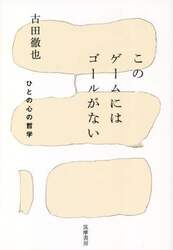 このゲームには
ゴールがない
ひとの心の哲学
古田徹也
筑摩書房